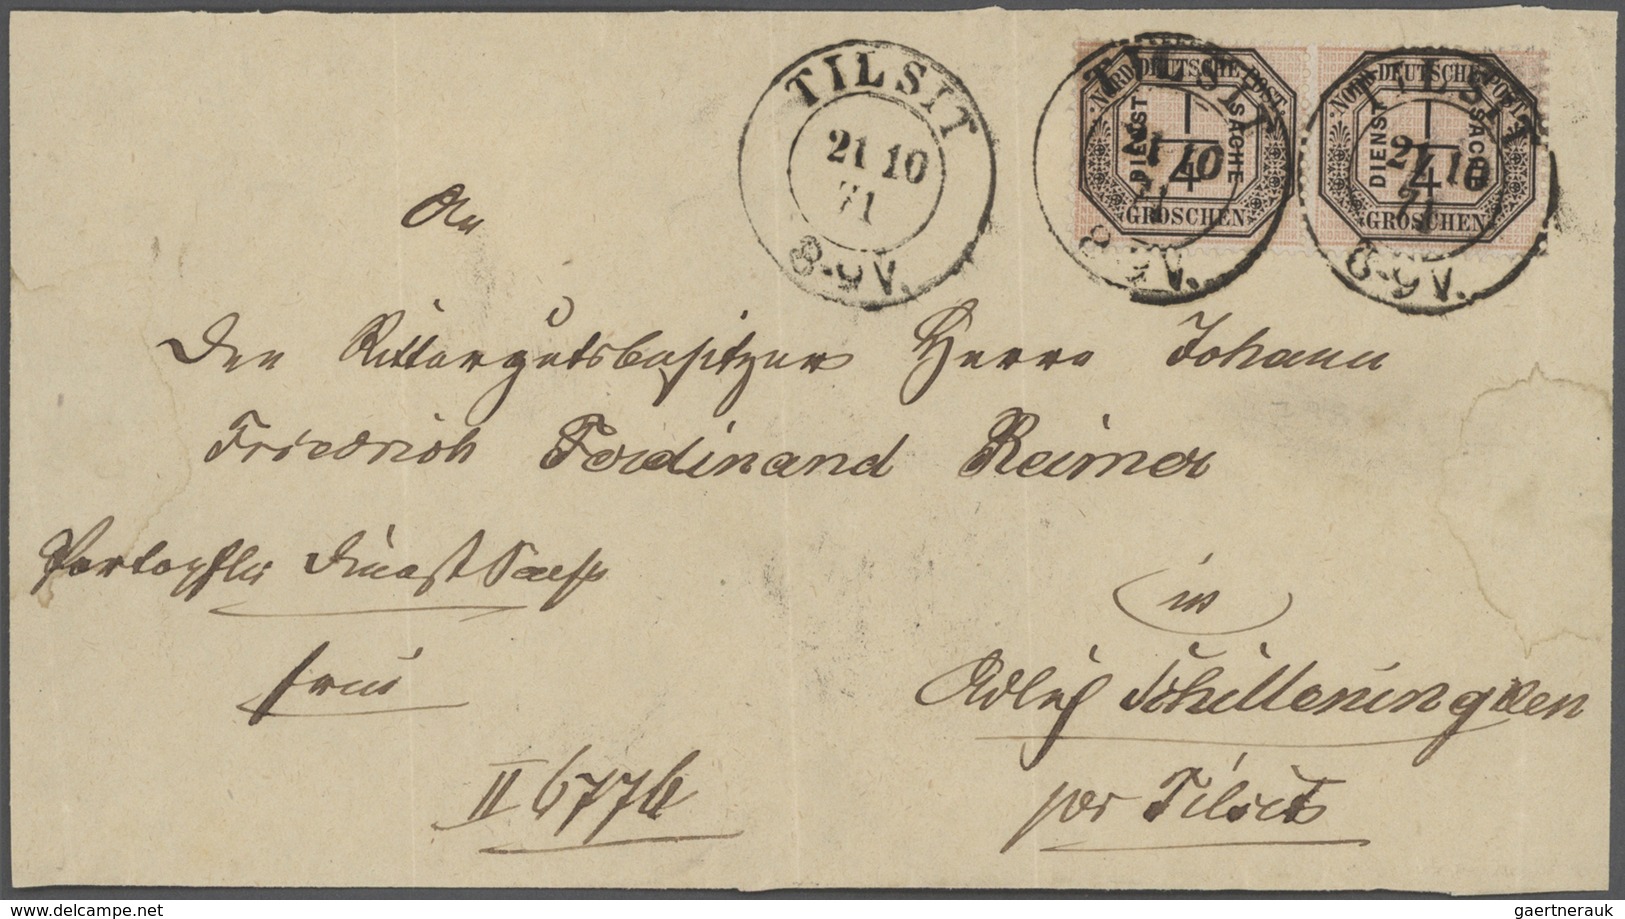 TILSIT
21 10
71
8-9V.
TILSIT
21 10
71
8-9V.
NORDDEUTSCHE POST
DIENST 1/4 SACHE
GROSCHEN
TILSIT
21 10
71
8-9V.
NORDDEUTSCHE POST
DIENST 1/4 SACHE
GROSCHEN
An
Den Rittergutsbesitzer Herrn Johann
Friedrich Ferdinand Reimer
Portopflr Dienst Sache
frei
in
Adlig Schilleningken
per Tilsit
II 6776
delcampe.net
gaertnerauk